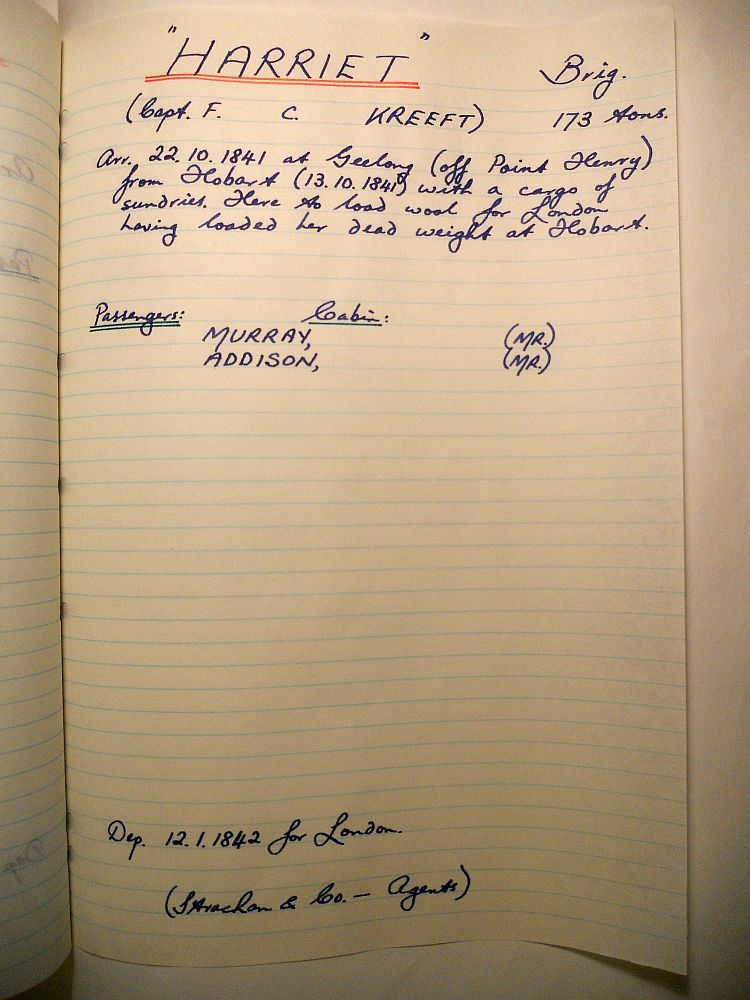 "HARRIET" Brig.
(Capt. F. C. KREEFT) 173 tons.
Arr. 22.10.1841 at Geelong (off Point Henry)
from Hobart (13.10.1841) with a cargo of
sundries. Here to load wool for London
having loaded her dead weight at Hobart.
Passengers: Cabin:
MURRAY, (MR.)
ADDISON, (MR.)
Dep. 12.1.1842 for London.
(Strachan & Co. — Agents)